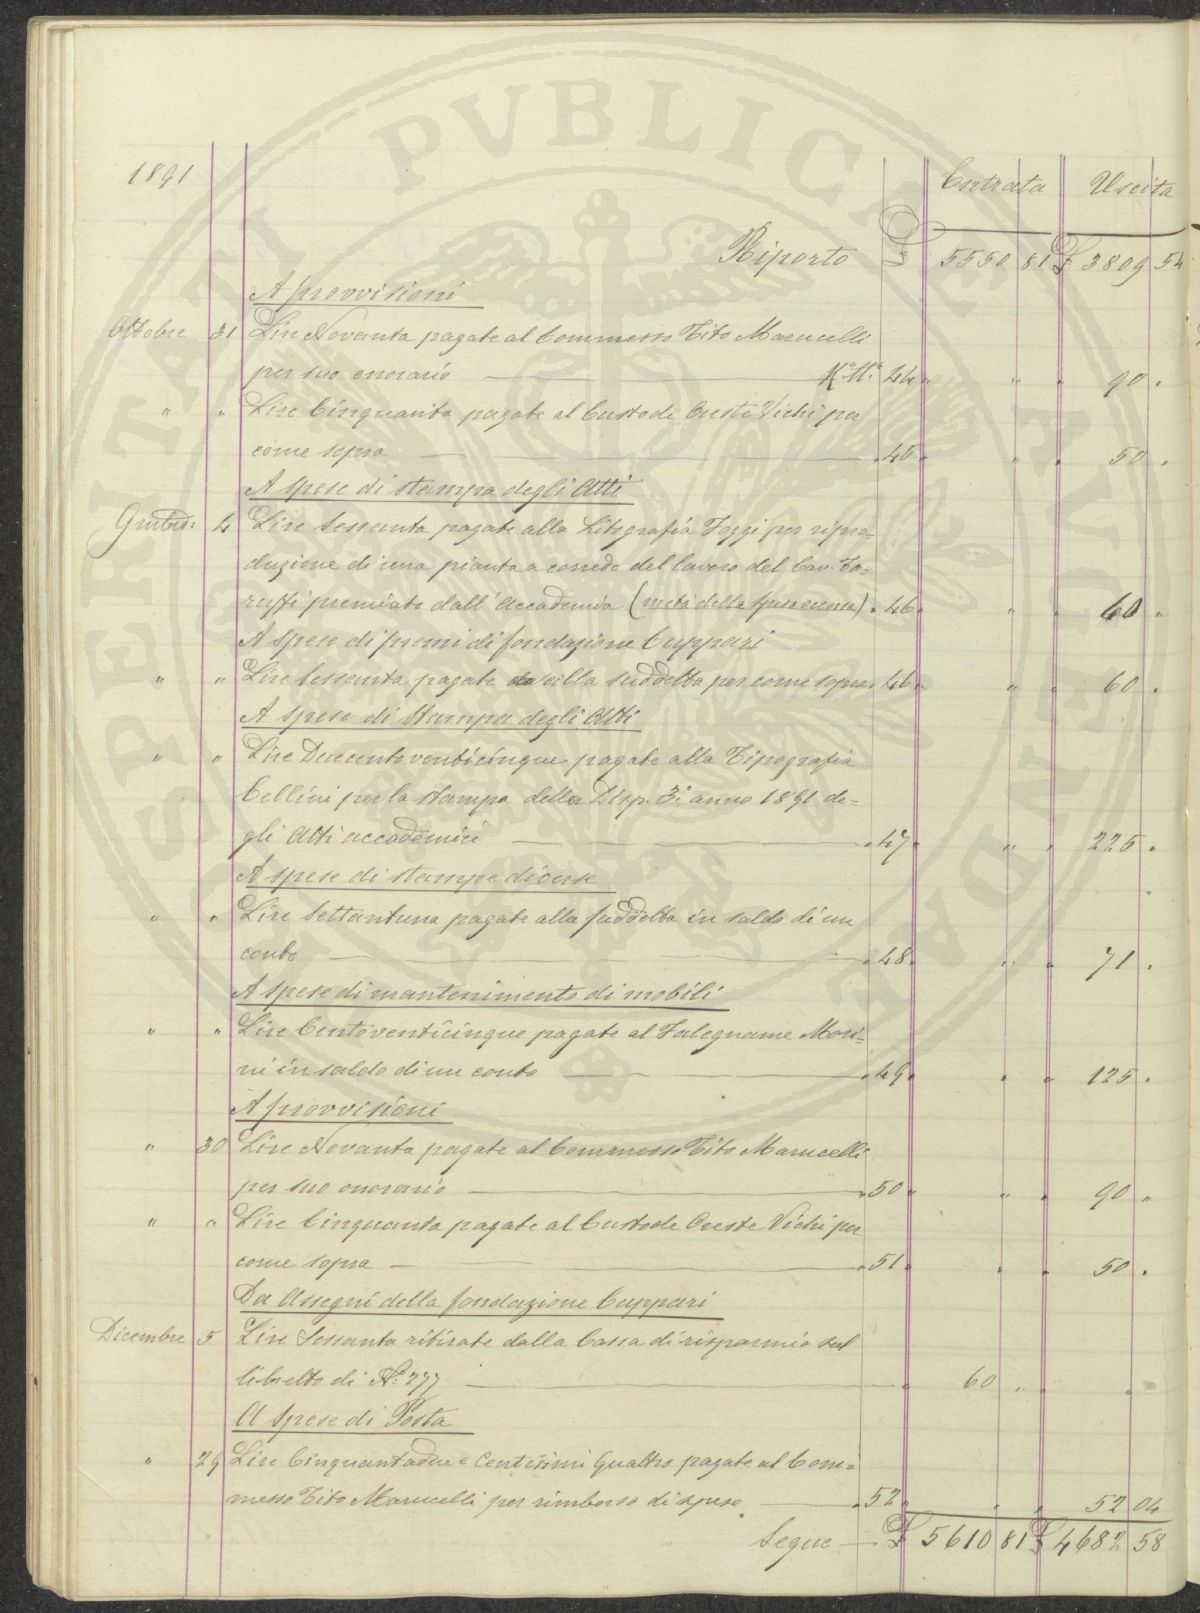 PENITATI PVBLICAE AVENAE
1891
Entrata Uscita
Riporto £ 5550 81 £ 3809 54
A provvisioni
Ottobre 31 Lire Novanta pagate al Commesso Tito Marucelli
per suo onorario — 44 " " " 90 "
" " Lire Cinquanta pagate al Custode Oreste Vichi per
come sopra — " 45 " " " 50 "
A spese di stampa degli Atti
4 Lire Sessanta pagate alla Litografia per ripro-
duzione di una pianta a corredo del lavoro del Cav. Ta-
ruffi premiato dall' Accademia (metà della spesa occorsa) " 46 " " " 60 "
A spese di premi di fondazione Cuppari
" " Lire Sessanta pagate alla suddetta per come sopra " 46 " " " 60 "
A spese di Stampa degli Atti
" " Lire Duecentoventicinque pagate alla Tipografia
Cellini per la stampa della Disp. 3a anno 1891 de-
gli Atti accademici — " 47 " " " 225 "
A spese di stampe diverse
" " Lire Settantuna pagate alla suddetta in saldo di un
conto — " 48 " " " 71 "
A spese di mantenimento di mobili
" " Lire Centoventicinque pagate al Falegname Mori-
ni in saldo di un conto — " 49 " " " 125 "
A provvisioni
" 30 Lire Novanta pagate al Commesso Tito Marucelli
per suo onorario — " 50 " " " 90 "
" " Lire Cinquanta pagate al Custode Oreste Vichi per
come sopra — " 51 " " " 50 "
Da Assegni della fondazione Cuppari
Dicembre 5 Lire Sessanta ritirate dalla Cassa di risparmio sul
libretto di No. 277 — " 60 " " "
A spese di Posta
" 29 Lire Cinquantadue e Centesimi Quattro pagate al Com-
messo Tito Marucelli per rimborso di spese — " 52 " " " 52 04
Segue — £ 5610 81 £ 4682 58